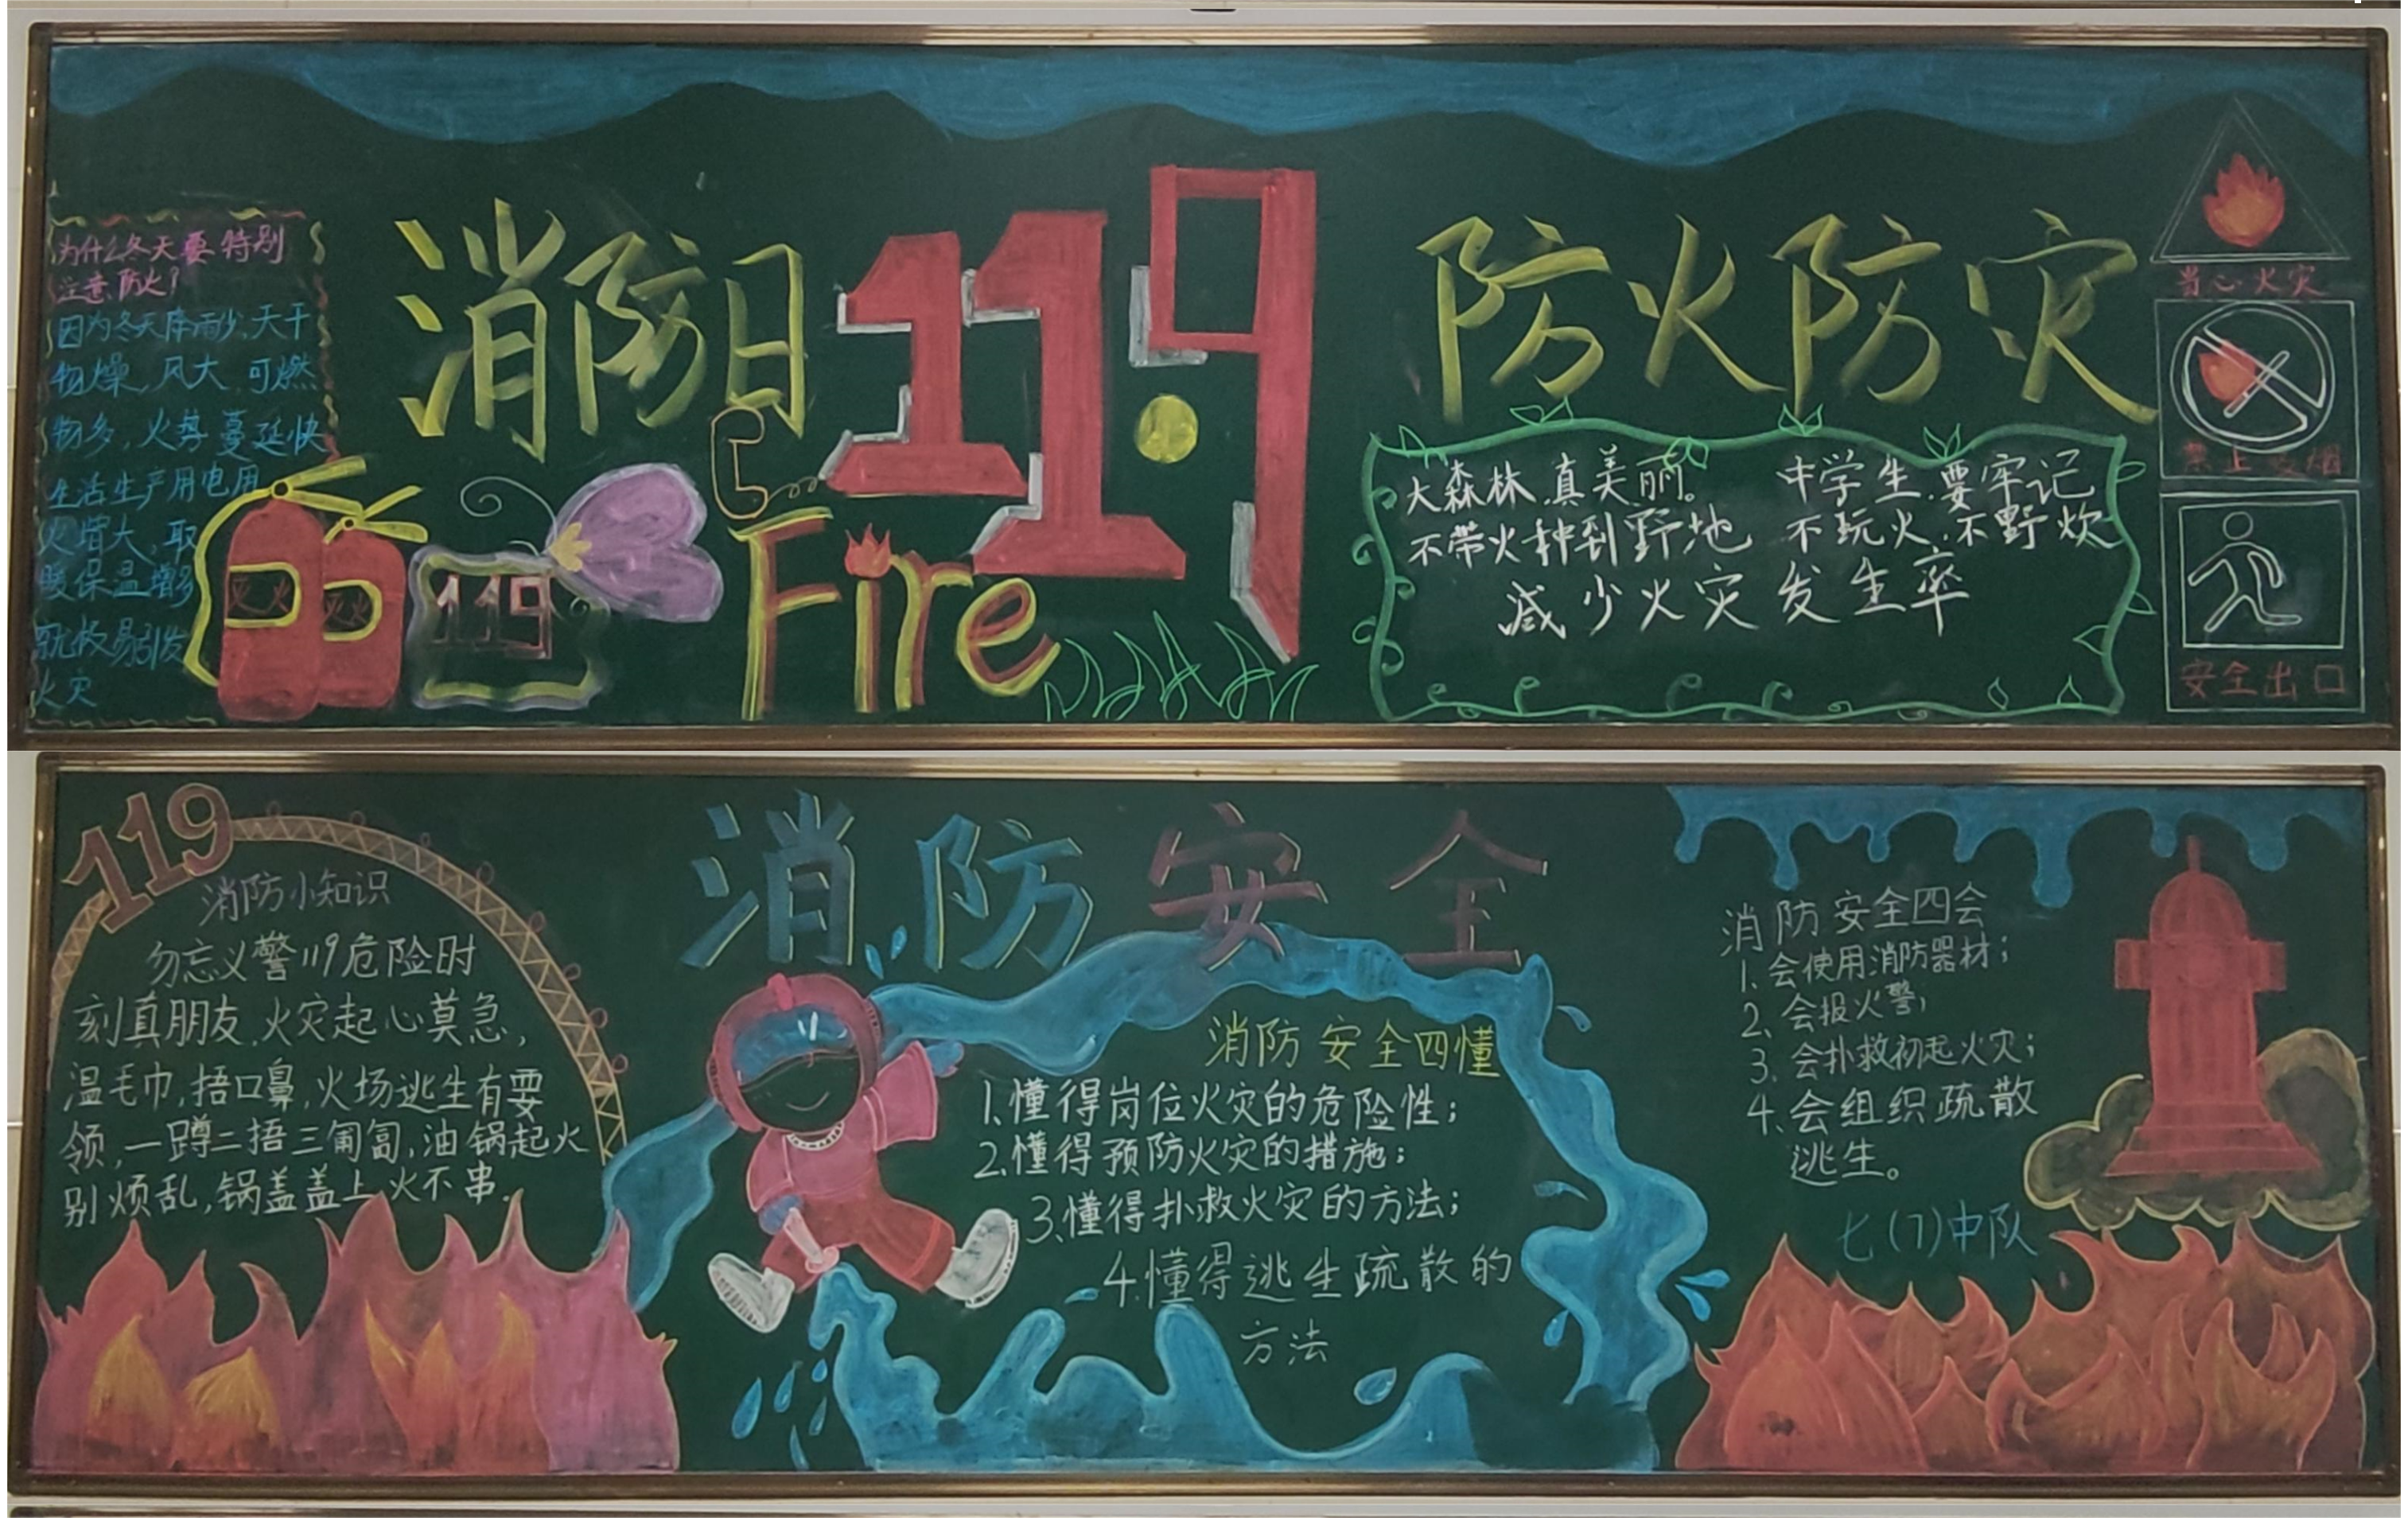 为什么冬天要特别
注意防火？
因为冬天降雨少，天干
物燥，风大，可燃
物多，火势蔓延快
生活生产用电用
火增大，取
暖保温增多
故易引发
火灾
消防日
11.9
灭火
灭火
119
Fire
防火防灾
大森林，真美丽。
不带火种到野地
中学生，要牢记
不玩火，不野炊
减少火灾发生率
当心火灾
禁止吸烟
安全出口
119
消防小知识
勿忘义警119危险时
刻真朋友，火灾起心莫急，
温毛巾，捂口鼻，火场逃生有要
领，一蹲二捂三匍匐，油锅起火
别烦乱，锅盖盖上火不串。
消防安全
消防安全四懂
1.懂得岗位火灾的危险性；
2.懂得预防火灾的措施；
3.懂得扑救火灾的方法；
4.懂得逃生疏散的
方法
消防安全四会
1.会使用消防器材；
2、会报火警；
3、会扑救初起火灾；
4、会组织疏散
逃生。
七(7)中队